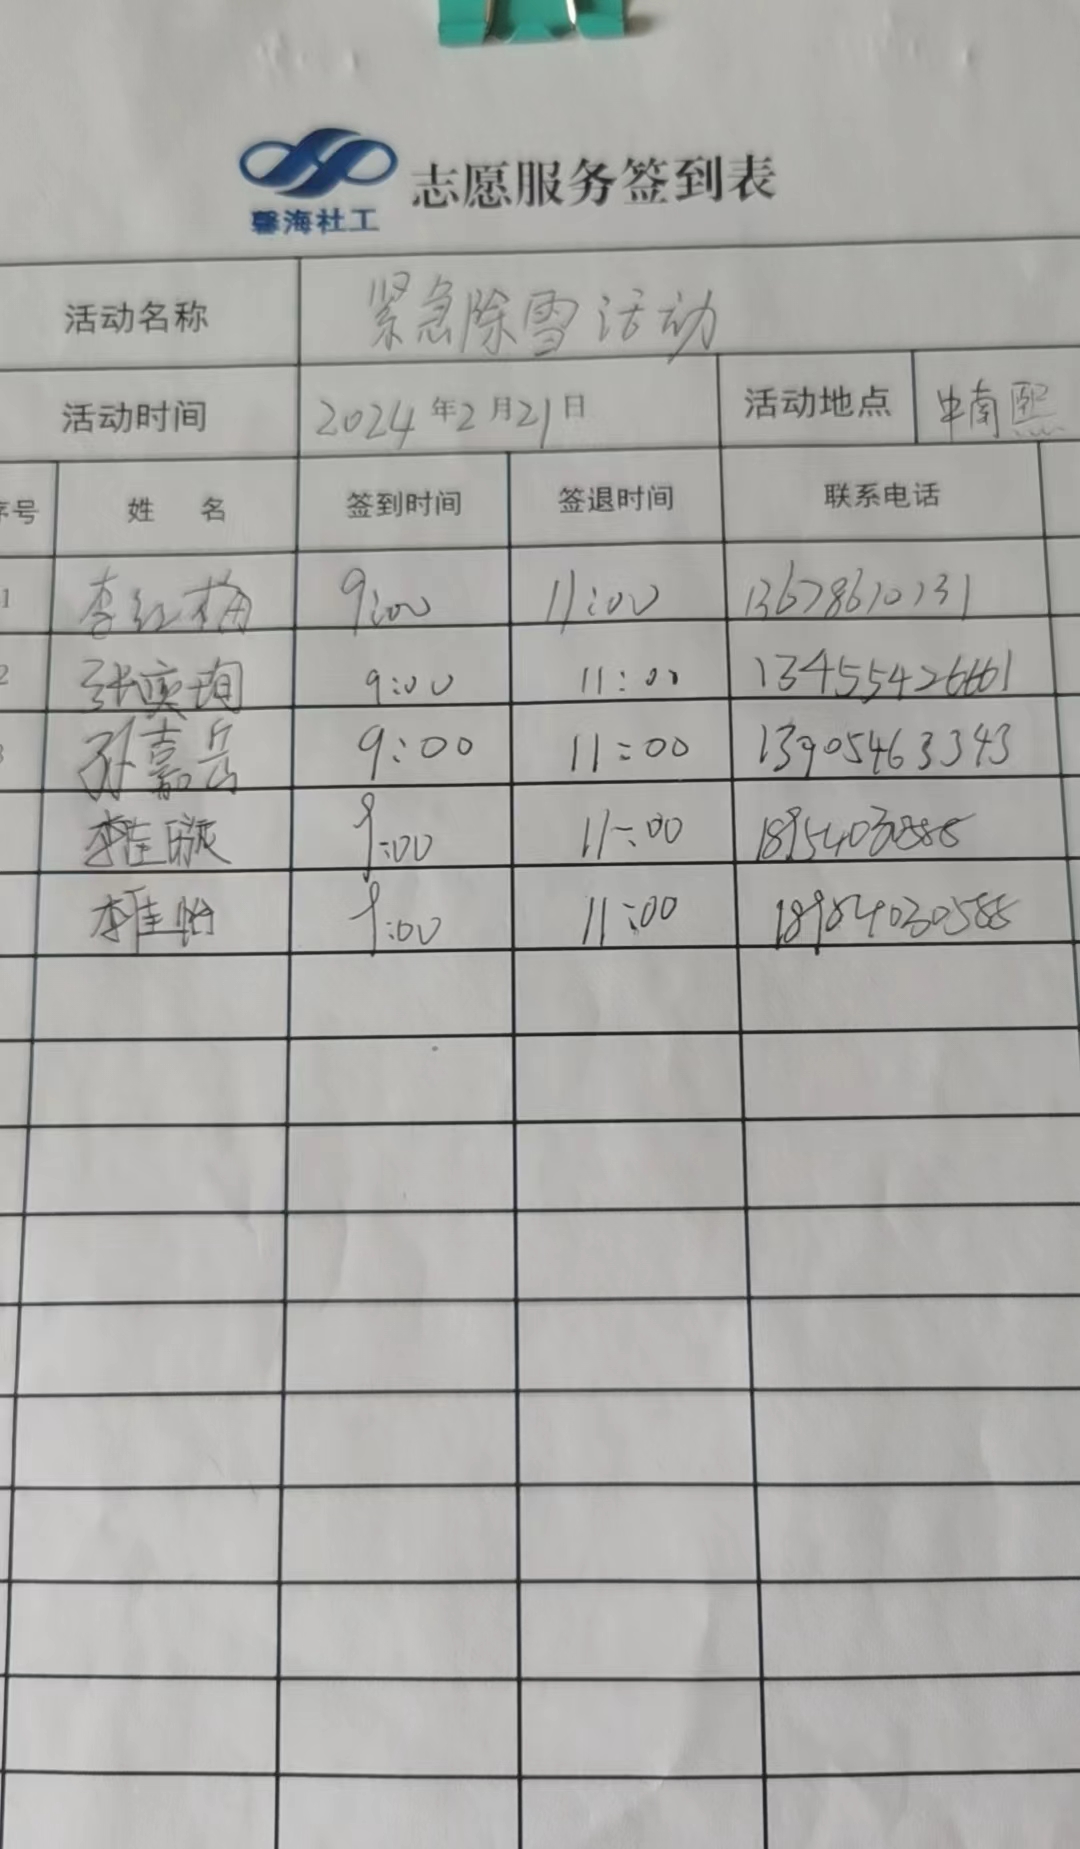 志愿服务签到表
馨海社工
活动名称 紧急除雪活动
活动时间 2024年2月21日 活动地点 中南熙
序号 姓 名 签到时间 签退时间 联系电话
1 李红梅 9:00 11:00 13678610131
2 张奕珣 9:00 11:00 13455426661
3 孙嘉岳 9:00 11:00 13905463343
李佳 9:00 11:00
李佳怡 9:00 11:00